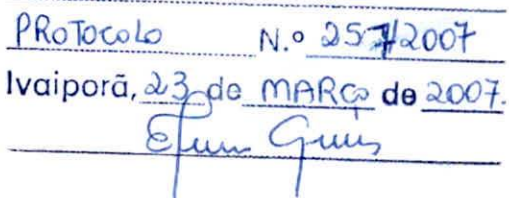 PROTOCOLO N.º 257/2007
Ivaiporã, 23 de MARÇO de 2007.